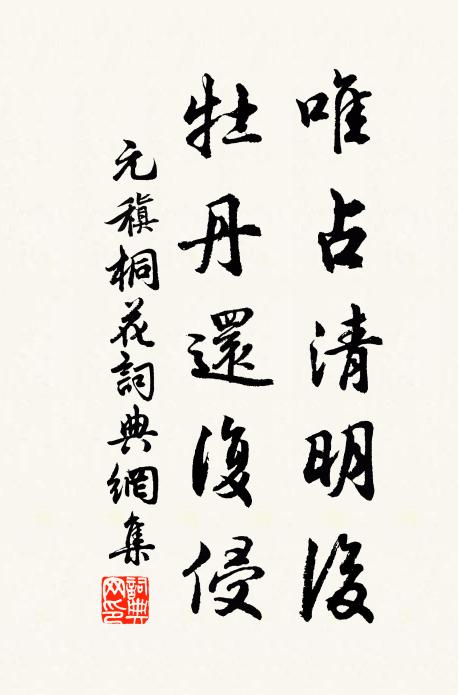 唯占清明後
牡丹還復侵
元稹桐花詞典網集
詞典網印